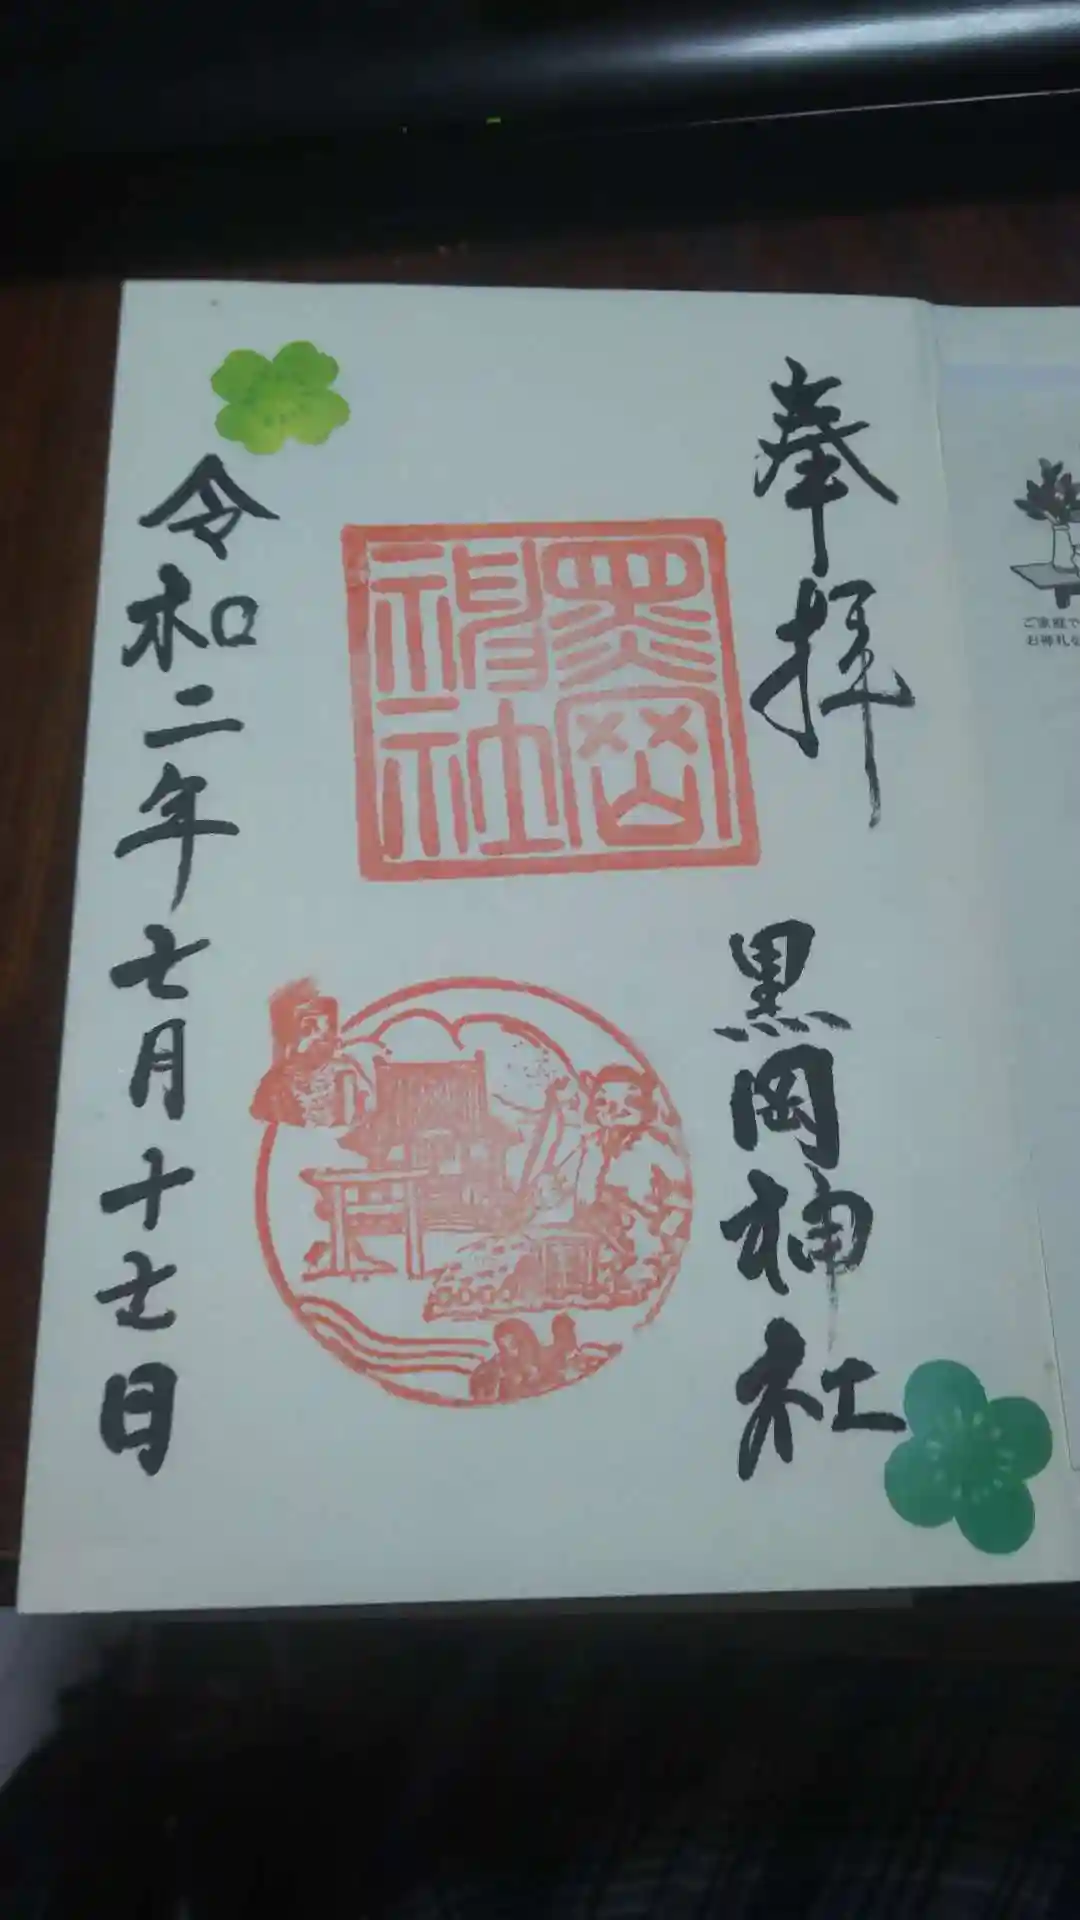 奉拝
黒岡神社
黒岡
神社
令和二年七月十七日
ご家庭で